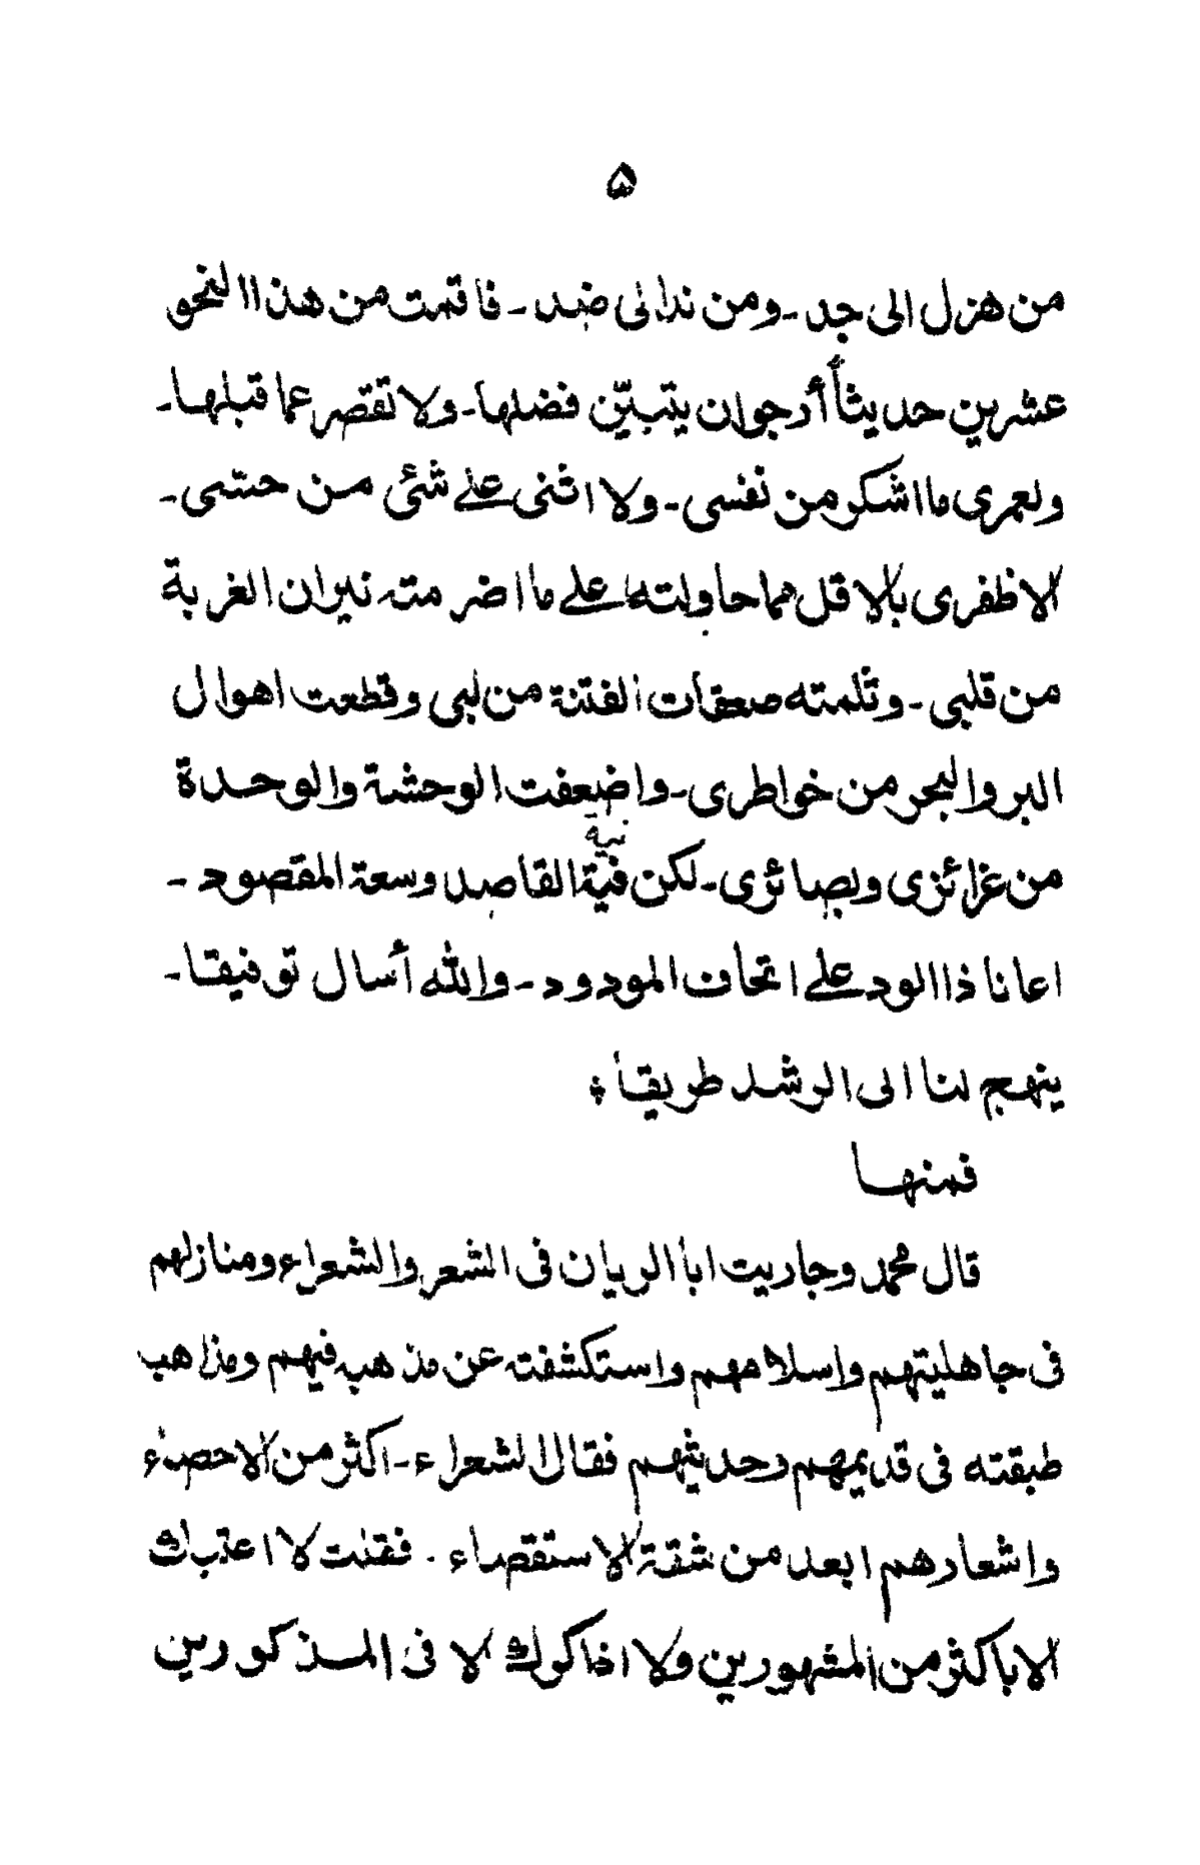 ۵
من هزل الى جد ـ ومن ندالى ضد ـ فاقمت من هذا النحو
عشرين حديثاً أرجوان يتبيّن فضلها ـ ولا تقتصر عما قبلها ـ
ولعمرى ما اشكر من نفسى ـ ولا اثنى على شئ من حسى ـ
الا ظفرى بالاقل مما حاولته على ما اضرمته نيران الغربة
من قلبى ـ وثلمته صعقات الفتنة من لبى وقطعت اهوال
البر والبحر من خواطرى ـ واضعفت الوحشة والوحدة
من غرائزى وبصائرى ـ لكن فية القاصد وسعة المقصود ـ
نية
اعانا ذا الود على اتحاف المودود ـ والله أسال توفيقا ـ
ينهج لنا الى الرشد طريقاً
فمنها
قال محمد وجاريت ابا الريان فى الشعر والشعراء ومنازلهم
فى جاهليتهم واسلامهم واستكشفته عن مذهبه فيهم ومذاهب
طبقته فى قديمهم وحديثهم فقال الشعراء ـ اكثر من الاحصاء
واشعارهم ابعد من شقة الاستقصاء . فقلت لا اعتبك
الا باكثر من المشهورين ولا اذاكرك الا فى المذكورين